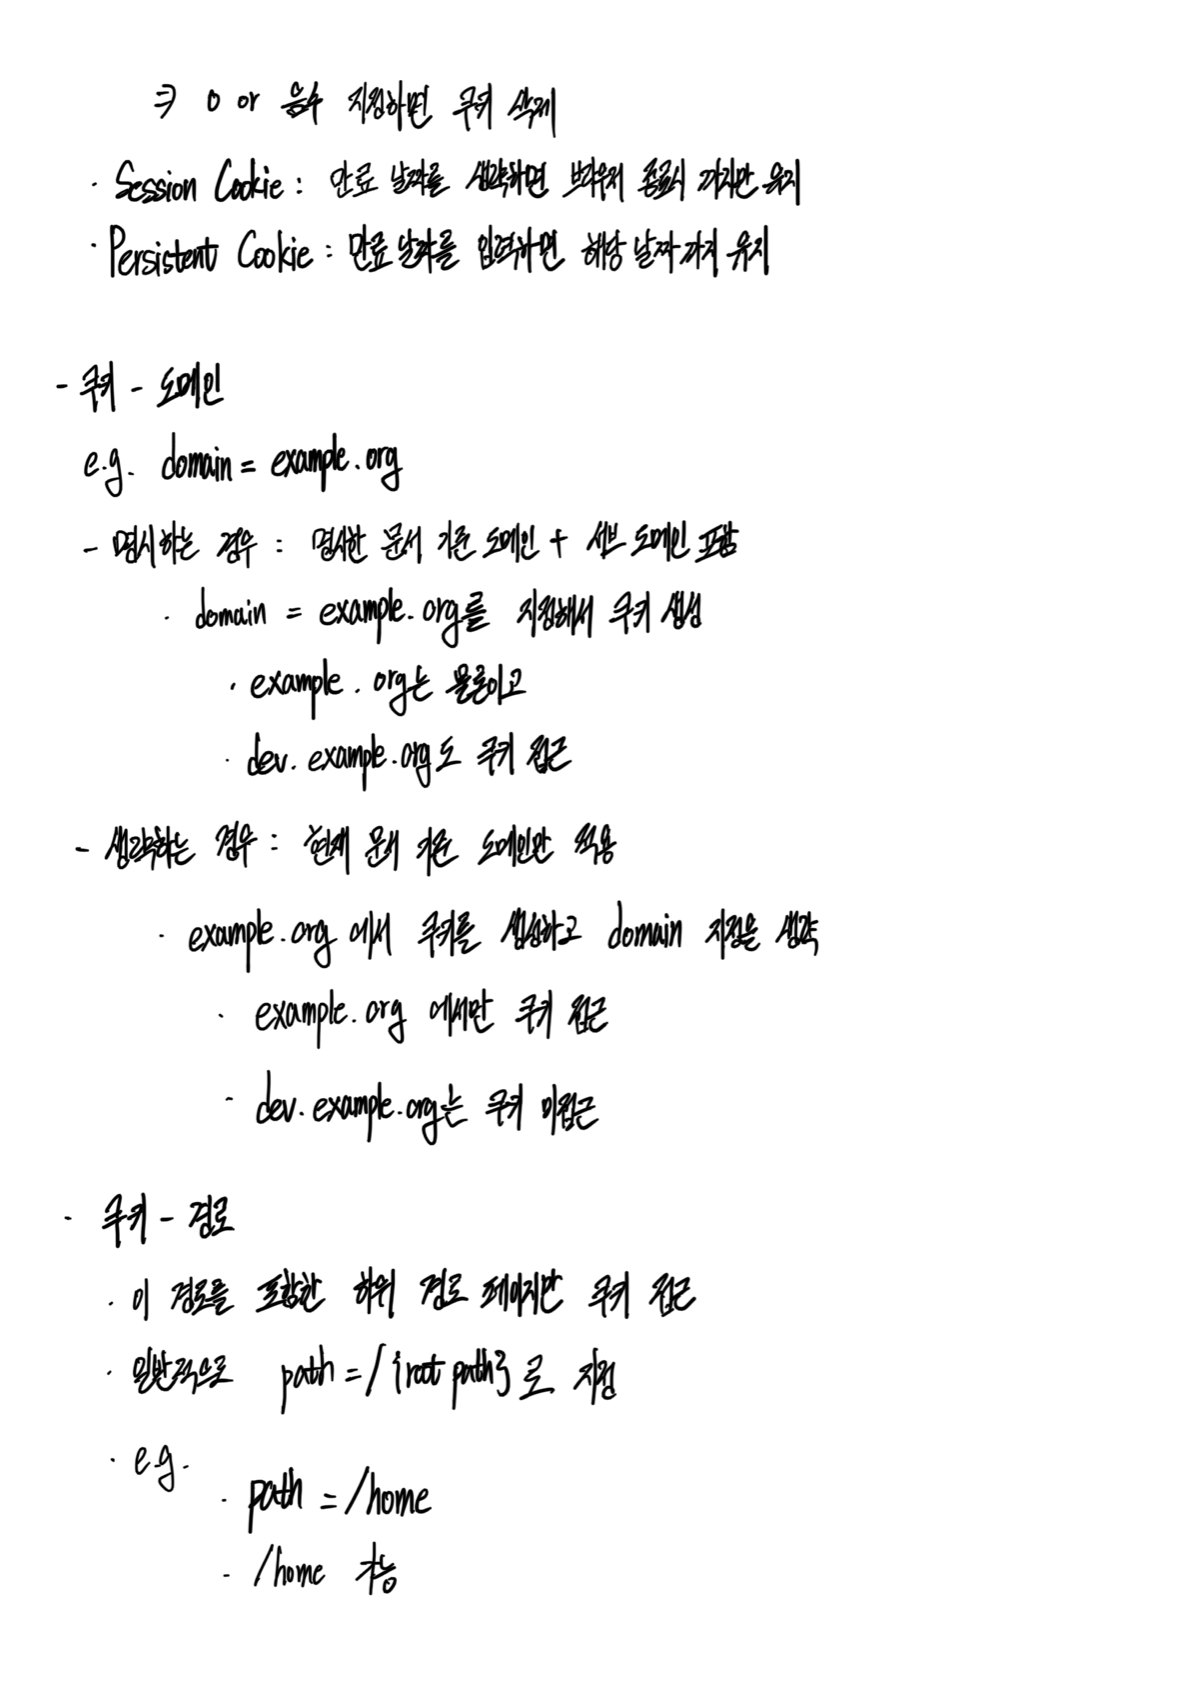 ⇒ 0 or 음수 지정하면 쿠키 삭제
· Session Cookie : 만료 날짜를 생략하면 브라우저 종료시 까지만 유지
· Persistent Cookie : 만료 날짜를 입력하면 해당 날짜까지 유지
- 쿠키 - 도메인
e.g. domain = example.org
- 명시하는 경우 : 명시한 문서 기준 도메인 + 서브 도메인 포함
· domain = example.org를 지정해서 쿠키 생성
· example.org는 물론이고
· dev.example.org도 쿠키 접근
- 생략하는 경우 : 현재 문서 기준 도메인만 적용
· example.org 에서 쿠키를 생성하고 domain 지정을 생략
· example.org 에서만 쿠키 접근
- dev.example.org는 쿠키 미접근
- 쿠키 - 경로
· 이 경로를 포함한 하위 경로 페이지만 쿠키 접근
· 일반적으로 path = / {root path} 로 지정
· e.g.
· path = /home
- /home 가능